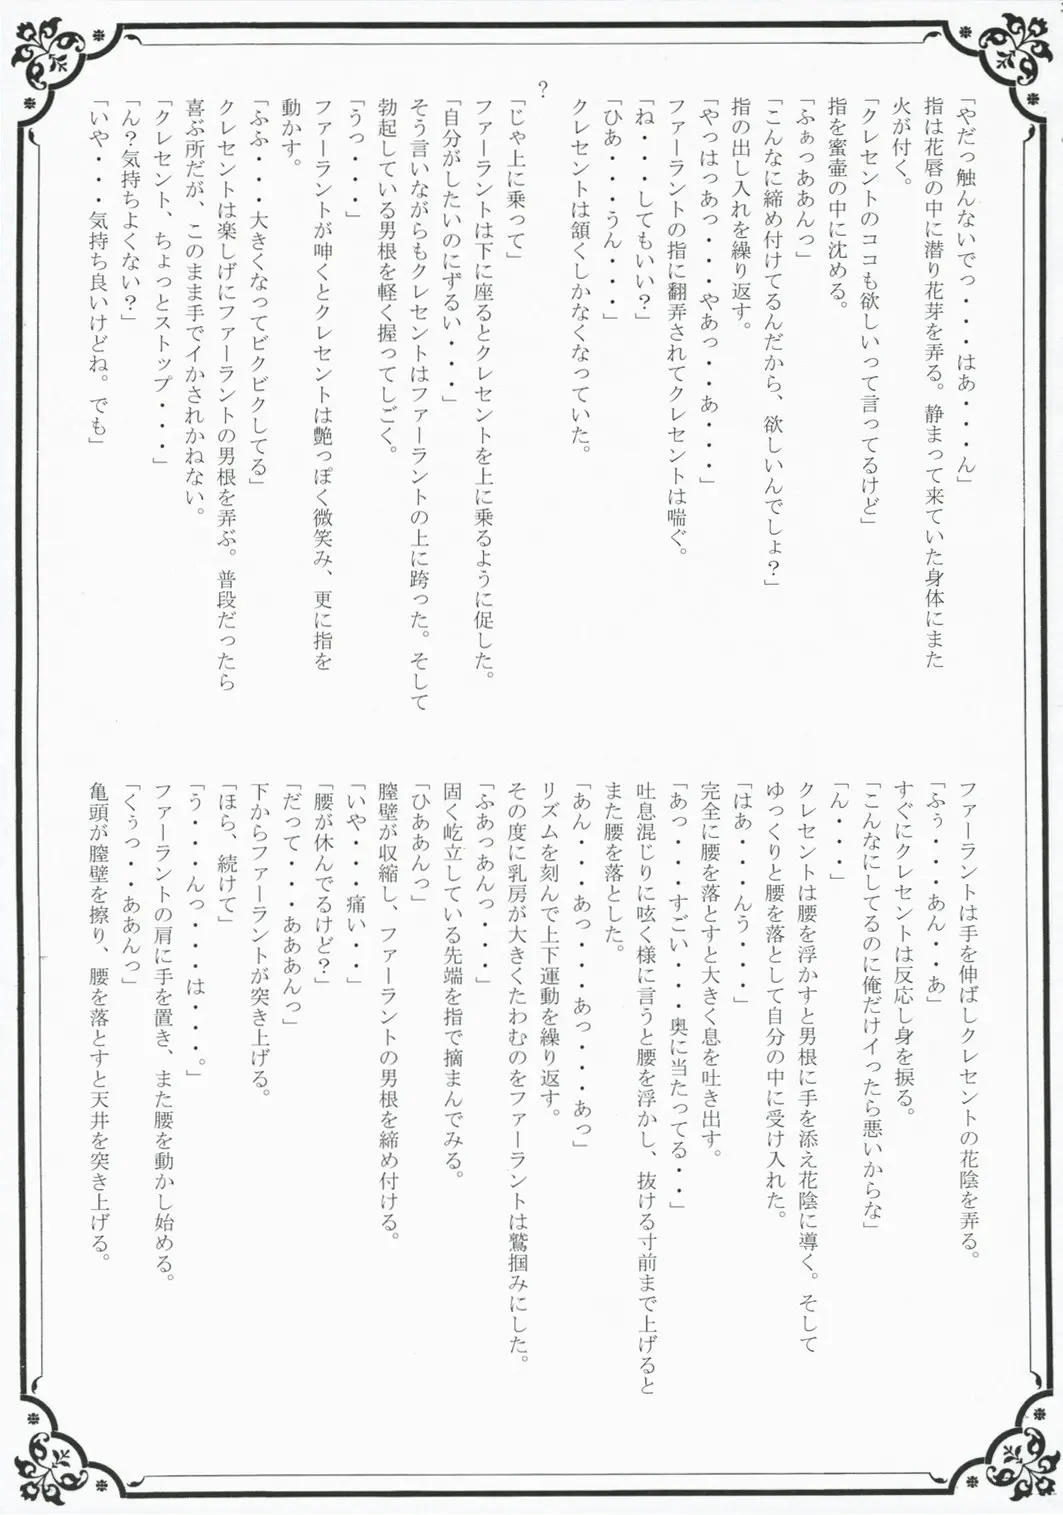 「やだっ触んないでっ・・・はぁ・・・ん」
指は花唇の中に潜り花芽を弄る。静まって来ていた身体にまた
火が付く。
「クレセントのココも欲しいって言ってるけど」
指を蜜壷の中に沈める。
「ふぁっああんっ」
「こんなに締め付けてるんだから、欲しいんでしょ？」
指の出し入れを繰り返す。
「やっはっあっ・・・やあっ・・・あ・・・」
ファーラントの指に翻弄されてクレセントは喘ぐ。
「ね・・・してもいい？」
「ひあ・・・うん・・・」
クレセントは頷くしかなくなっていた。
？
「じゃ上に乗って」
ファーラントは下に座るとクレセントを上に乗るように促した。
「自分がしたいのにずるい・・・」
そう言いながらもクレセントはファーラントの上に跨った。そして
勃起している男根を軽く握ってしごく。
「うっ・・・」
ファーラントが呻くとクレセントは艶っぽく微笑み、更に指を
動かす。
「ふふ・・・大きくなってビクビクしてる」
クレセントは楽しげにファーラントの男根を弄ぶ。普段だったら
喜ぶ所だが、このまま手でイかされかねない。
「クレセント、ちょっとストップ・・・」
「ん？気持ちよくない？」
「いや・・・気持ち良いけどね。でも」
ファーラントは手を伸ばしクレセントの花陰を弄る。
「ふぅ・・・あん・・あ」
すぐにクレセントは反応し身を捩る。
「こんなにしてるのに俺だけイったら悪いからな」
「ん・・・」
クレセントは腰を浮かすと男根に手を添え花陰に導く。そして
ゆっくりと腰を落として自分の中に受け入れた。
「はあ・・・んう・・・」
完全に腰を落とすと大きく息を吐き出す。
「あっ・・・すごい・・・奥に当たってる・・」
吐息混じりに呟く様に言うと腰を浮かし、抜ける寸前まで上げると
また腰を落とした。
「あん・・・あっ・・・あっ・・・あっ」
リズムを刻んで上下運動を繰り返す。
その度に乳房が大きくたわむのをファーラントは鷲掴みにした。
「ふあっあんっ・・・」
固く屹立している先端を指で摘まんでみる。
「ひああんっ」
膣壁が収縮し、ファーラントの男根を締め付ける。
「いや・・・痛い・・」
「腰が休んでるけど？」
「だって・・・あああんっ」
下からファーラントが突き上げる。
「ほら、続けて」
「う・・・んっ・・・は・・・。」
ファーラントの肩に手を置き、また腰を動かし始める。
「くぅっ・・ああんっ」
亀頭が膣壁を擦り、腰を落とすと天井を突き上げる。